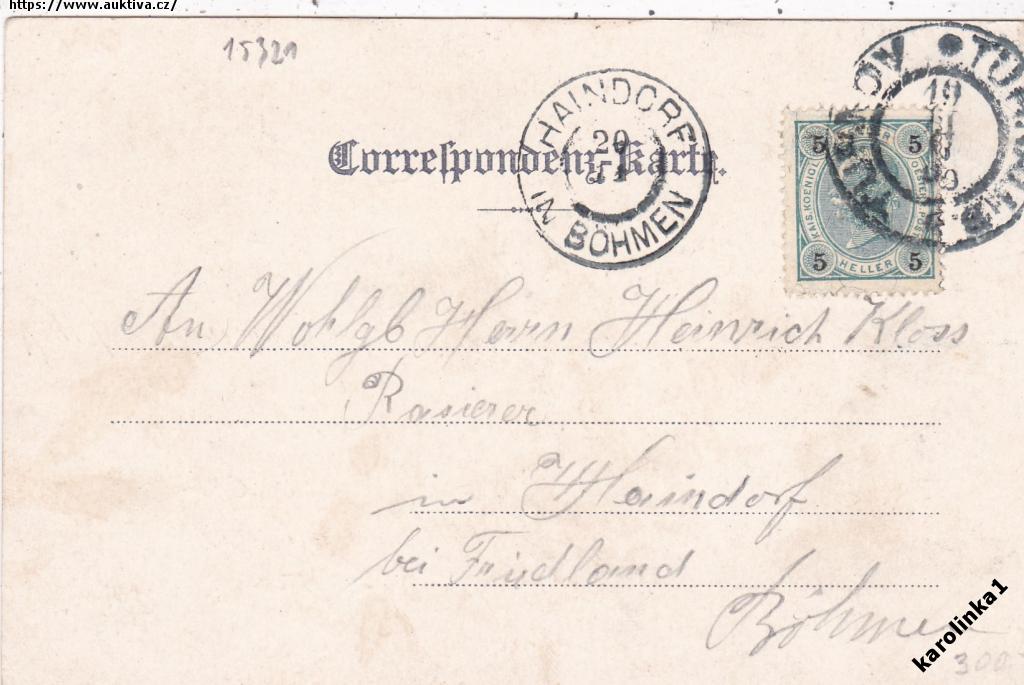 https://www.auktiva.cz/
15321
Correspondenz-Karte.
HAINDORF
20
IN BÖHMEN
TURNOV
TURNAU
19
5 5
KAIS. KOENIGL. OESTERR. POST
5 HELLER 5
An Wohlgb Herrn Heinrich Kloss
Rasierer
in Haindorf
bei Friedland
Böhmen
karolinka1
300,-